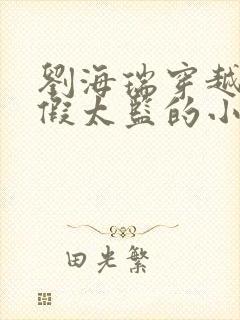 劉海瑞穿越
假太監的小
田光繁